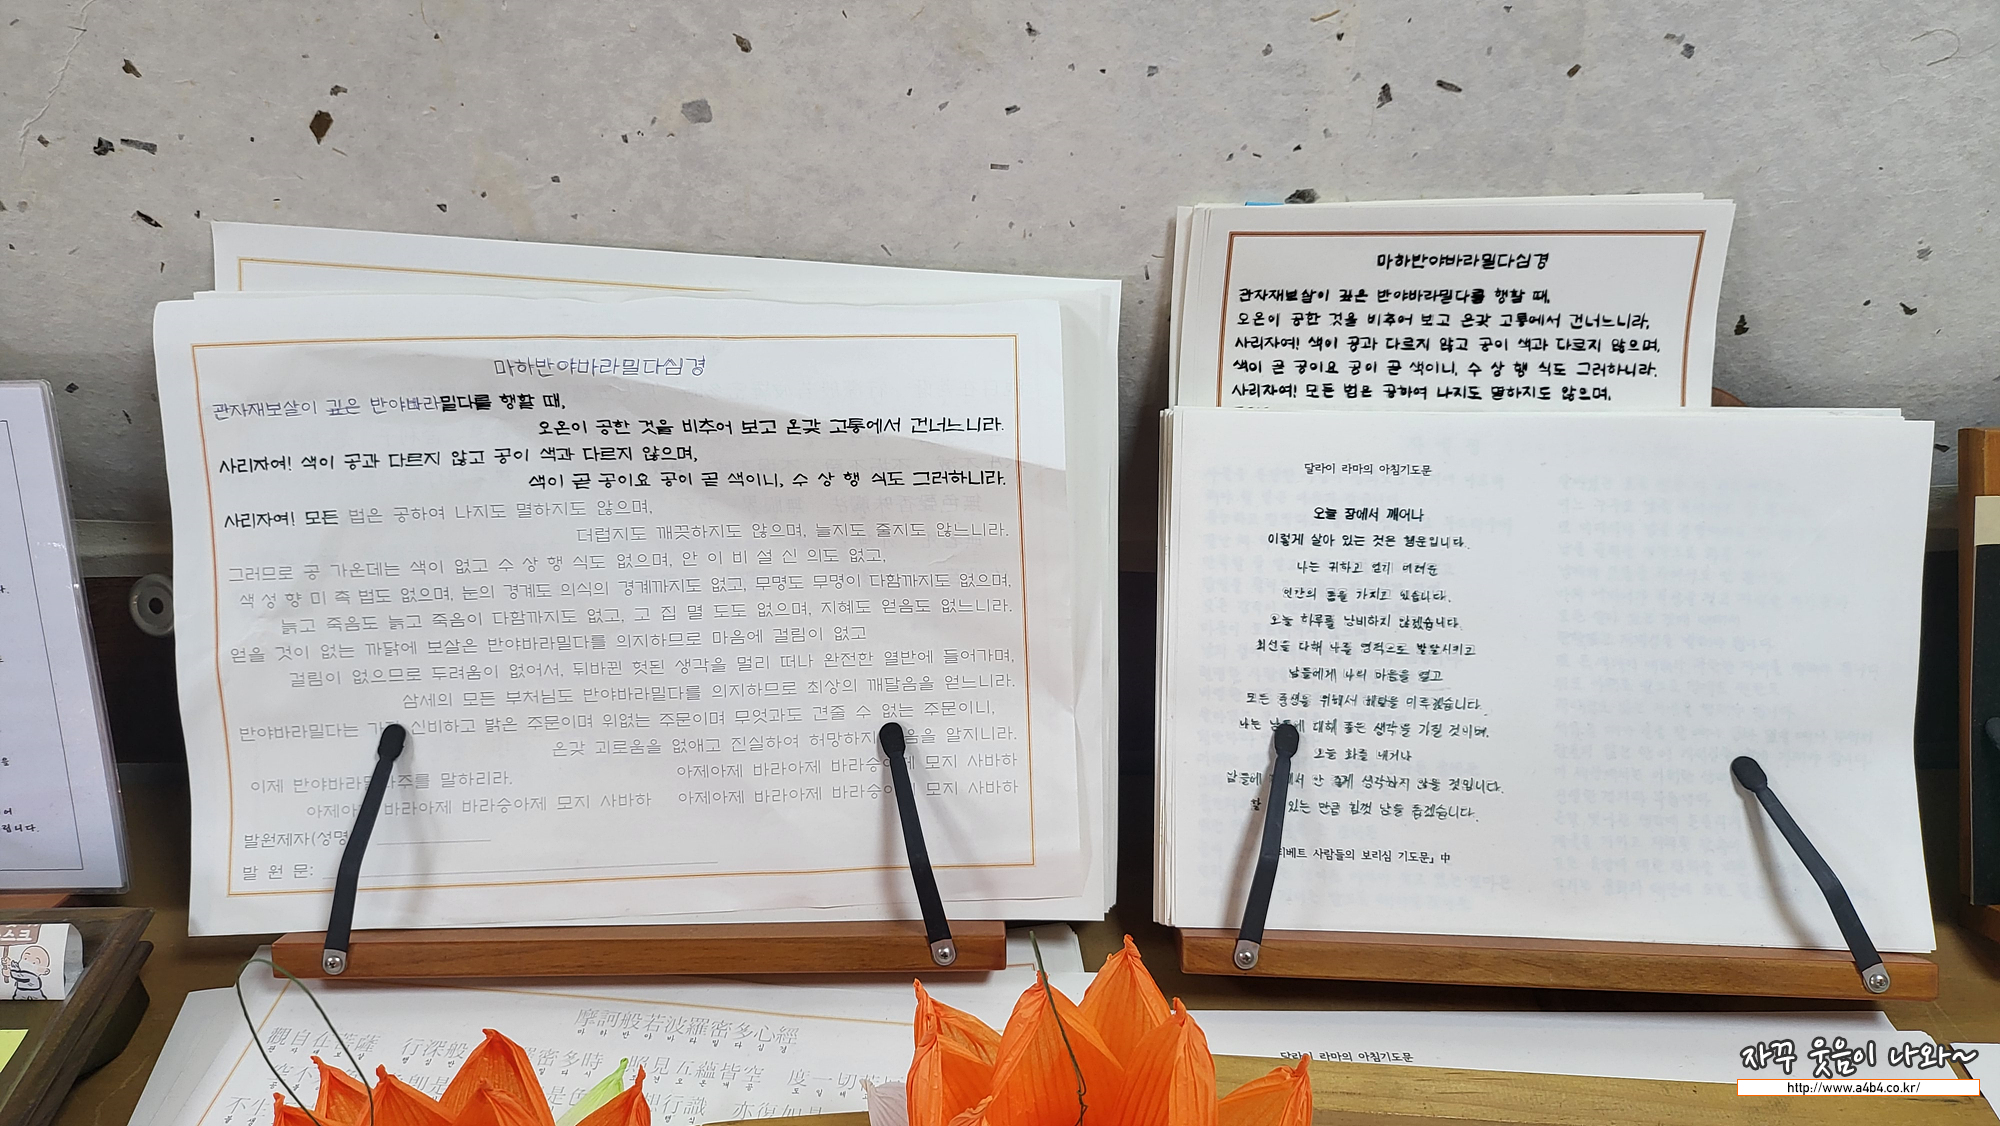 마하반야바라밀다심경
관자재보살이 깊은 반야바라밀다를 행할 때,
오온이 공한 것을 비추어 보고 온갖 고통에서 건너느니라.
사리자여! 색이 공과 다르지 않고 공이 색과 다르지 않으며,
색이 곧 공이요 공이 곧 색이니, 수 상 행 식도 그러하니라.
사리자여! 모든 법은 공하여 나지도 멸하지도 않으며,
더럽지도 깨끗하지도 않으며, 늘지도 줄지도 않느니라.
그러므로 공 가운데는 색이 없고 수 상 행 식도 없으며, 안 이 비 설 신 의도 없고,
색 성 향 미 촉 법도 없으며, 눈의 경계도 의식의 경계까지도 없고, 무명도 무명이 다함까지도 없으며,
늙고 죽음도 늙고 죽음이 다함까지도 없고, 고 집 멸 도도 없으며, 지혜도 얻음도 없느니라.
얻을 것이 없는 까닭에 보살은 반야바라밀다를 의지하므로 마음에 걸림이 없고
걸림이 없으므로 두려움이 없어서, 뒤바뀐 헛된 생각을 멀리 떠나 완전한 열반에 들어가며,
삼세의 모든 부처님도 반야바라밀다를 의지하므로 최상의 깨달음을 얻느니라.
반야바라밀다는 신비하고 밝은 주문이며 위없는 주문이며 무엇과도 견줄 수 없는 주문이니,
온갖 괴로움을 없애고 진실하여 허망하지 음을 알지니라.
이제 반야바라밀다주를 말하리라.
아제아제 바라아제 바라승아제 모지 사바하
아제아제 바라아제 바라승아제 모지 사바하
아제아제 바라아제 바라승아제 모지 사바하
발원제자(성명
발 원 문:
마하반야바라밀다심경
관자재보살이 깊은 반야바라밀다를 행할 때,
오온이 공한 것을 비추어 보고 온갖 고통에서 건너느니라.
사리자여! 색이 공과 다르지 않고 공이 색과 다르지 않으며,
색이 곧 공이요 공이 곧 색이니, 수 상 행 식도 그러하니라.
사리자여! 모든 법은 공하여 나지도 멸하지도 않으며,
달라이 라마의 아침기도문
오늘 잠에서 깨어나
이렇게 살아 있는 것은 행운입니다.
나는 귀하고 얻기 어려운
인간의 몸을 가지고 있습니다.
오늘 하루를 낭비하지 않겠습니다.
최선을 다해 나를 영적으로 발달시키고
남들에게 나의 마음을 열고
모든 중생을 위해서 해탈을 이루겠습니다.
나는 남들에 대해 좋은 생각을 가질 것이며,
오늘 화를 내거나
남들에 서 안 좋게 생각하지 않을 것입니다.
할 있는 만큼 힘껏 남을 돕겠습니다.
티베트 사람들의 보리심 기도문」 中
摩訶般若波羅密多心經
마하반야바라밀다심경
觀自在菩薩 行深般 羅密多時 照見五蘊皆空 度一切
달라이 라마의 아침기도문
자꾸 웃음이 나와~
http://www.a4b4.co.kr/